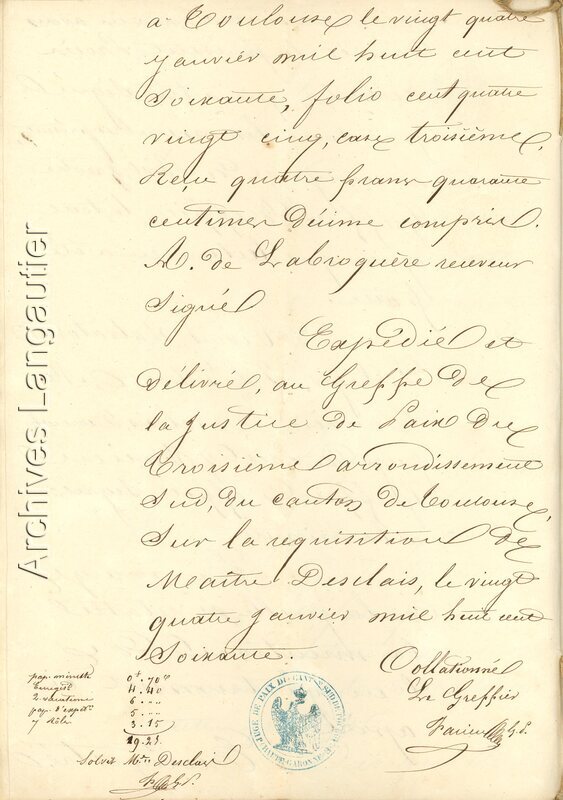 à Toulouse le vingt quatre
janvier mil huit cent
soixante, folio cent quatre
vingt cinq, case troisième.
Reçu quatre francs quarante
centimes Décime compris.
A. de Labroquère receveur
signé
Expédié et
délivré, au Greffe de
la justice de Paix du
troisième arrondissement
Sud, du canton de Toulouse,
sur la requisition de
Maître Desclais, le vingt
quatre janvier mil huit cent
soixante.
Collationné
Le Greffier
pap. minute 0f. 70c
Enregist. 4. 40
2 vacations 6. "
pap. d'expéd. 5. "
7 rôles 3. 15
19. 25
Solvit Me. Desclais
JUGE DE PAIX DU CANT
HAUTE-GARONNE
Archives Langautier